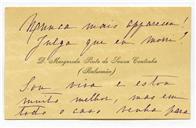 Nunca mais appareceu
Julga que eu morri?
D. Margarida Porto de Souza Coutinho
(Bertiandos)
Sou viva e estou
muito melhor, mas em
todo o caso venha para